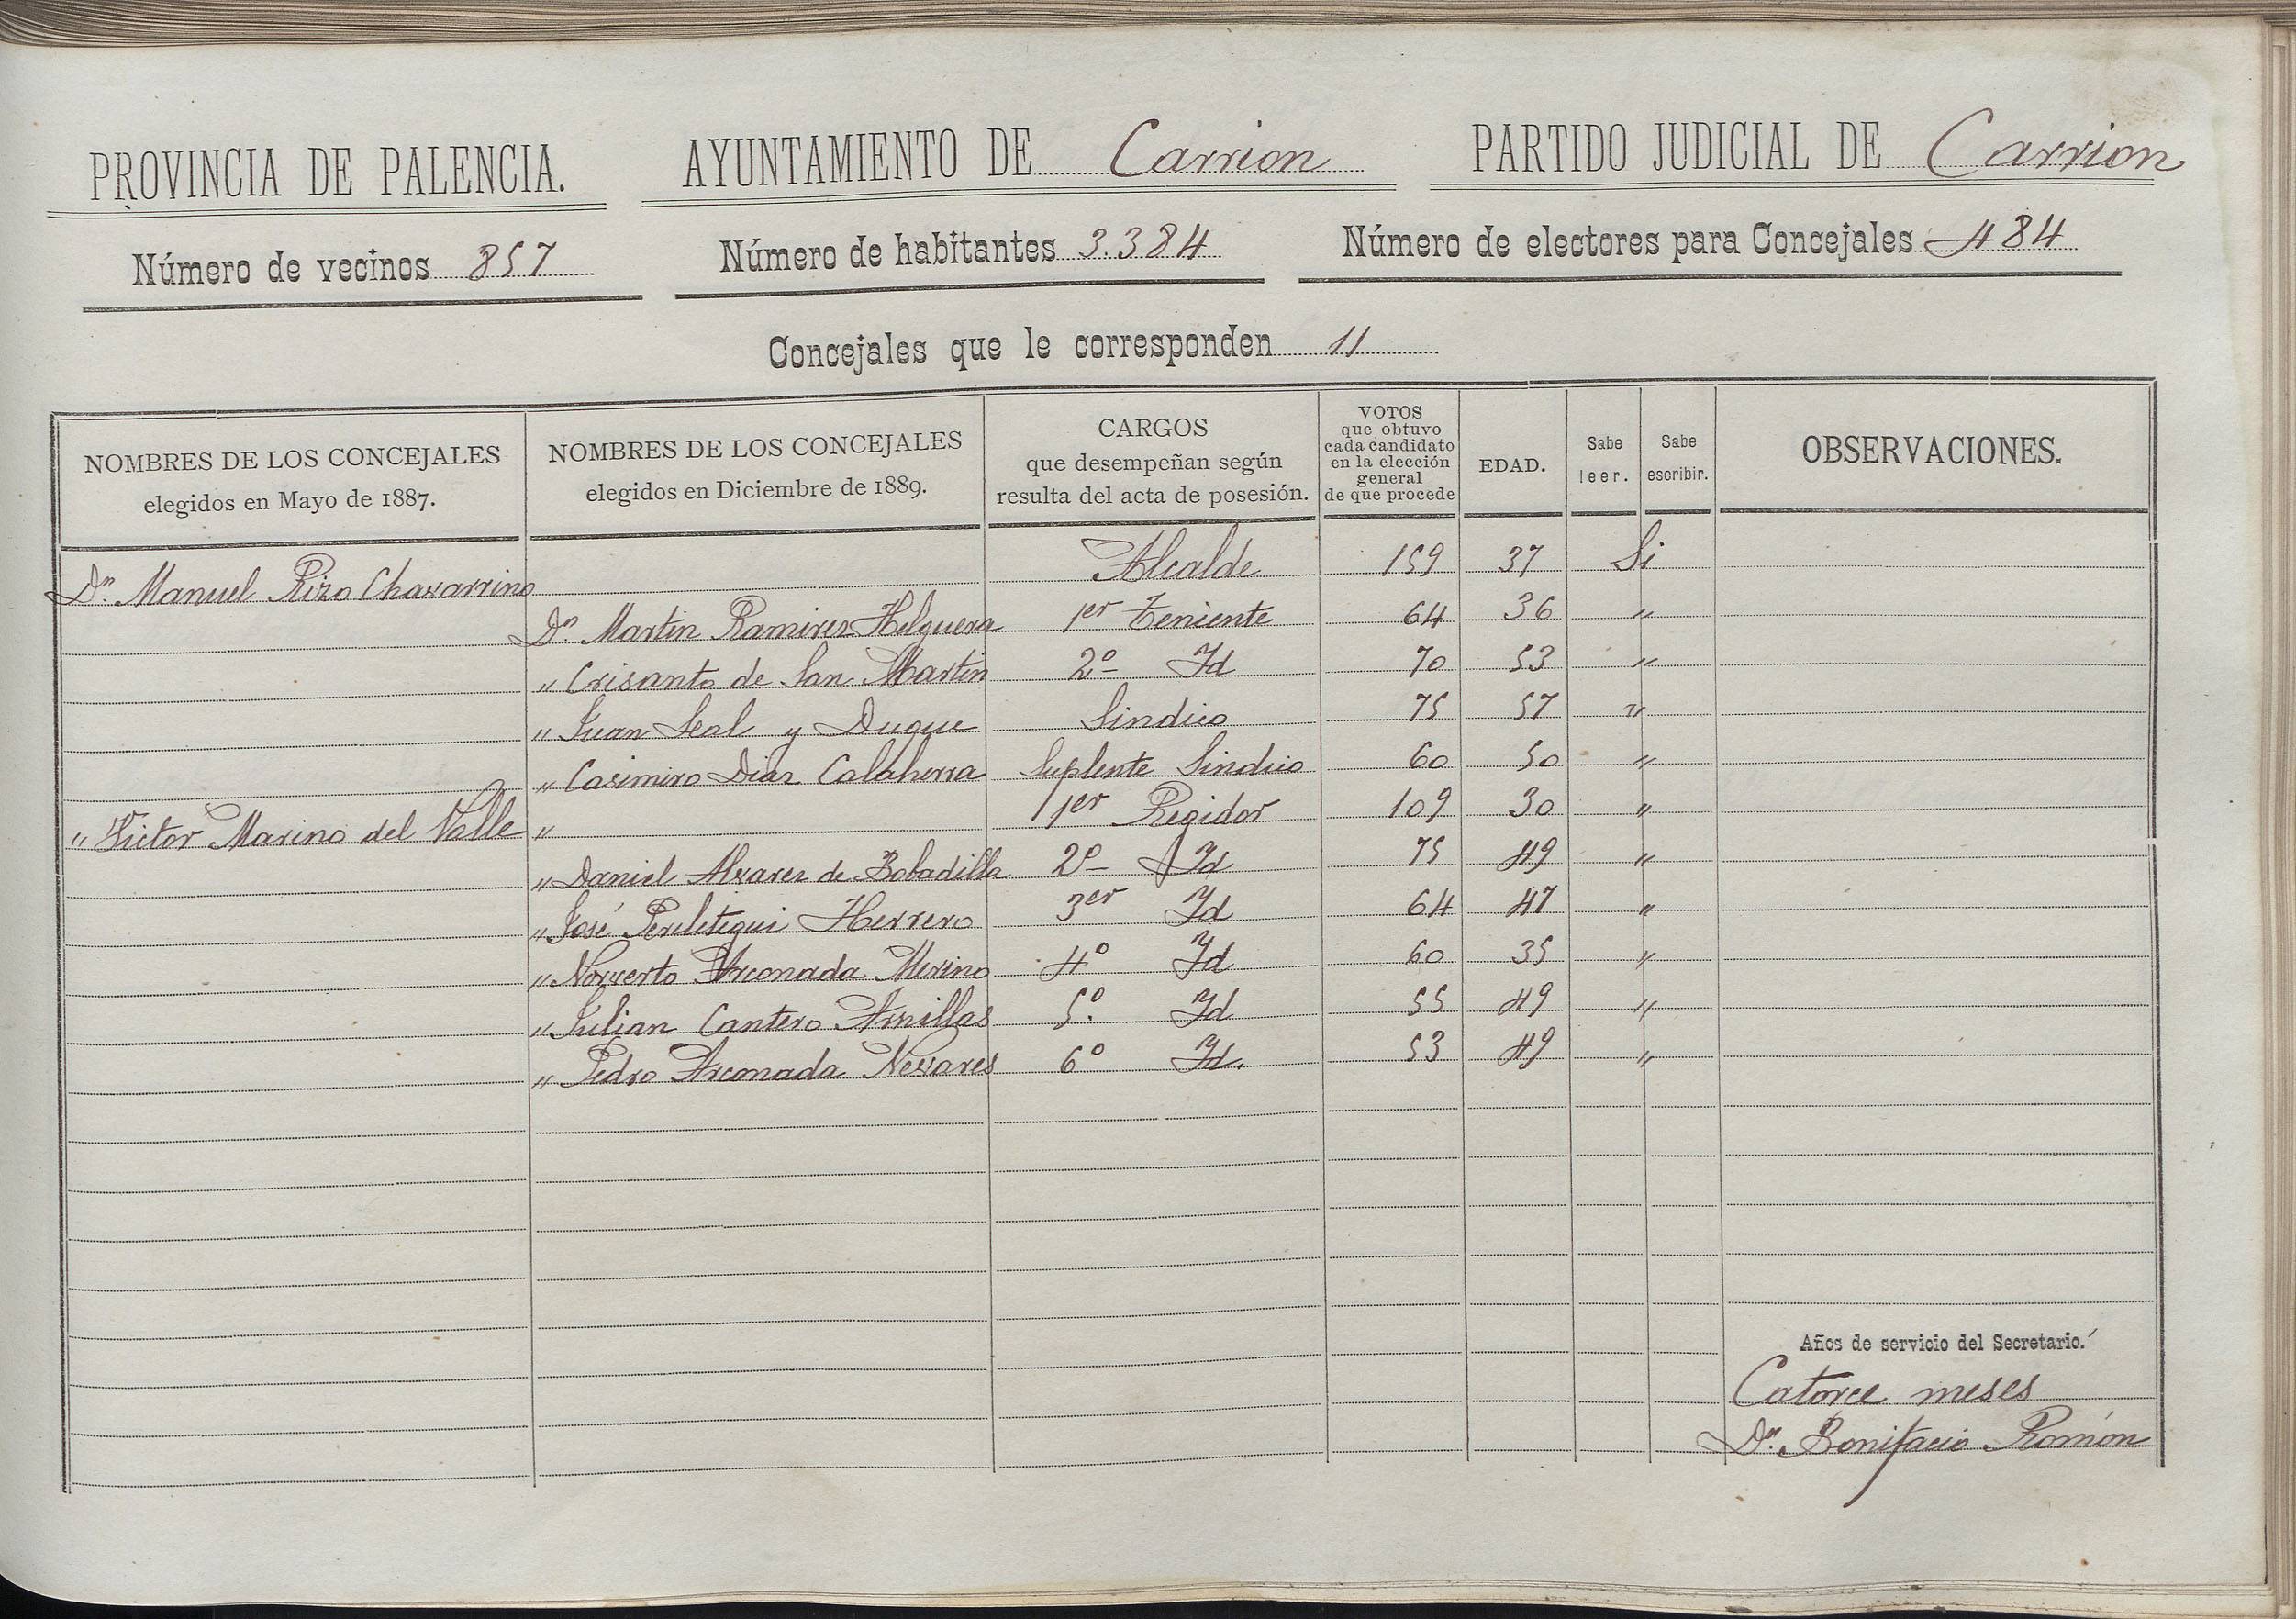 PROVINCIA DE PALENCIA. AYUNTAMIENTO DE Carrion PARTIDO JUDICIAL DE Carrion
Número de vecinos 857 Número de habitantes 3.384 Número de electores para Concejales 484
Concejales que le corresponden 11
NOMBRES DE LOS CONCEJALES elegidos en Mayo de 1887. NOMBRES DE LOS CONCEJALES elegidos en Diciembre de 1889. CARGOS que desempeñan según resulta del acta de posesión. VOTOS que obtuvo cada candidato en la elección general de que procede EDAD. Sabe leer. Sabe escribir. OBSERVACIONES.
Dn. Manuel Rizo Chavarrino Alcalde 159 37 Si
Dn Martin Ramirez Helguera 1er Teniente 64 36 "
" Crisanto de San Martin 2º Id 70 53 "
" Juan Leal y Duque Sindico 75 57 "
" Casimiro Diaz Calaherra Suplente Sindico 60 50 "
" Victor Marino del Valle " 1er Regidor 109 30 "
" Daniel Alvarez de Bobadilla 2º Id 75 49 "
" José Perelétegui Herrero 3er Id 64 47 "
" Norverto Arconada Merino 4º Id 60 35 "
" Julian Cantero Arnillas 5º Id 55 49 "
" Pedro Arconada Nevares 6º Id. 53 49 "
Años de servicio del Secretario.
Catorce meses
Dn. Bonifacio Román